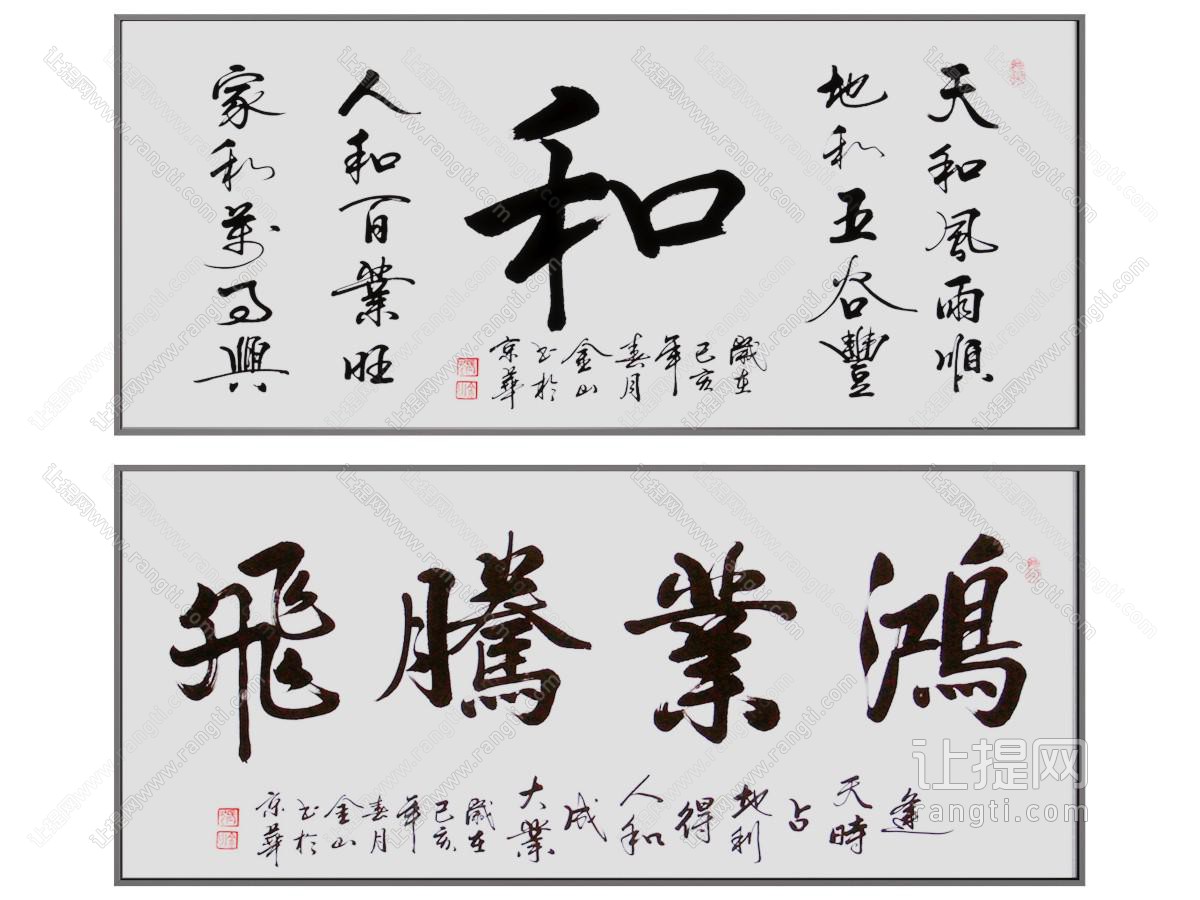 天和風雨順
地和五谷豐
和
人和百業旺
家和萬事興
歲在
己亥
年
春月
金山
书於
京華
鴻業騰飛
逢
天時
占
地利
得
人和
成
大業
歲在
己亥
年
春月
金山
书於
京華
让提网
rangti.com
让提网www.rangti.com